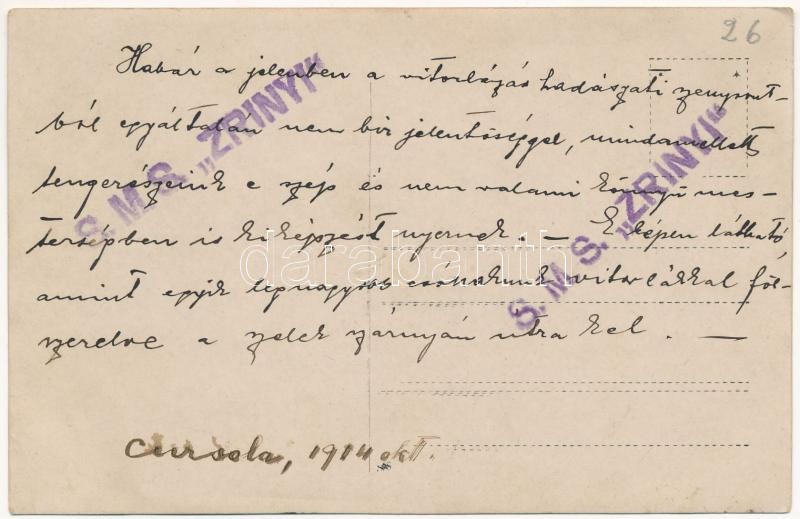 26
Habár a jelenben a vitorlázás hadászati szempont-
ból egyáltalán nem bir jelentőséggel, mindamellett
tengerészeink e szép és nem valami könnyü mes-
terségben is kiképzést nyernek. — E képen látható,
amint egyik legnagyobb csónakunk vitorlákkal föl-
szerelve a szelek szárnyán utra kel. —
Curzola, 1914 okt.
S. M. S. „ZRINYI“
S. M. S. „ZRINYI“
darabanth